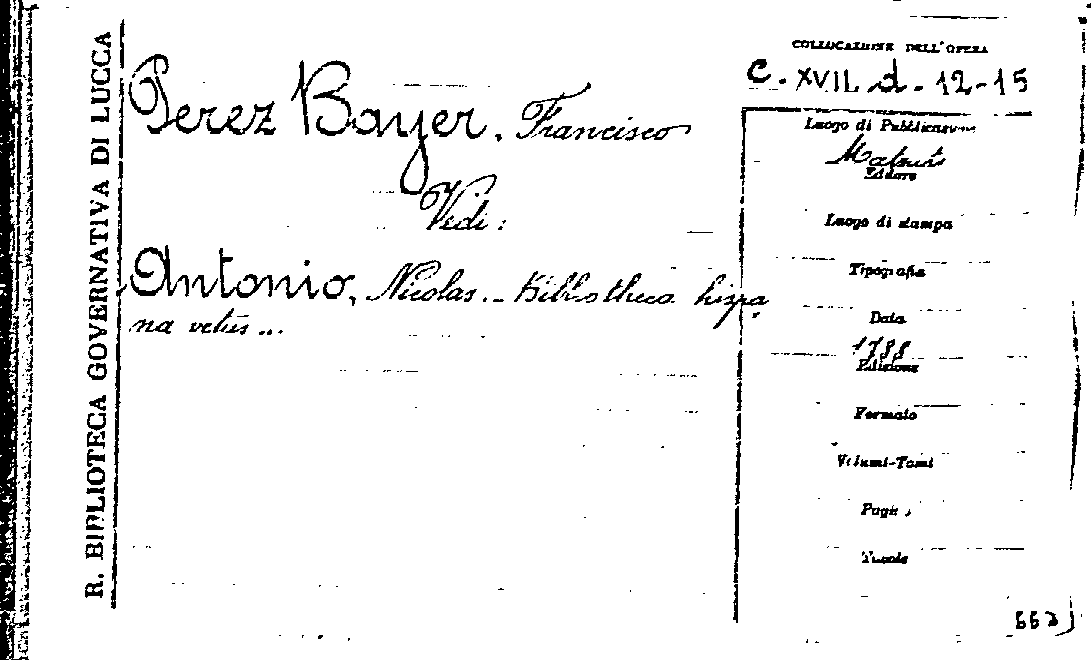 R. BIBLIOTECA GOVERNATIVA DI LUCCA
Perez Bayer, Francisco
Vedi:
Antonio, Nicolas. - Bibliotheca hispa
na vetus ...
COLLOCAZIONE DELL'OPERA
C. XVII. d. 12-15
Luogo di Pubblicazione
Editore
Luogo di stampa
Tipografia
Data
1788
Edizione
Formato
Volumi-Tomi
Pagine
Tavole